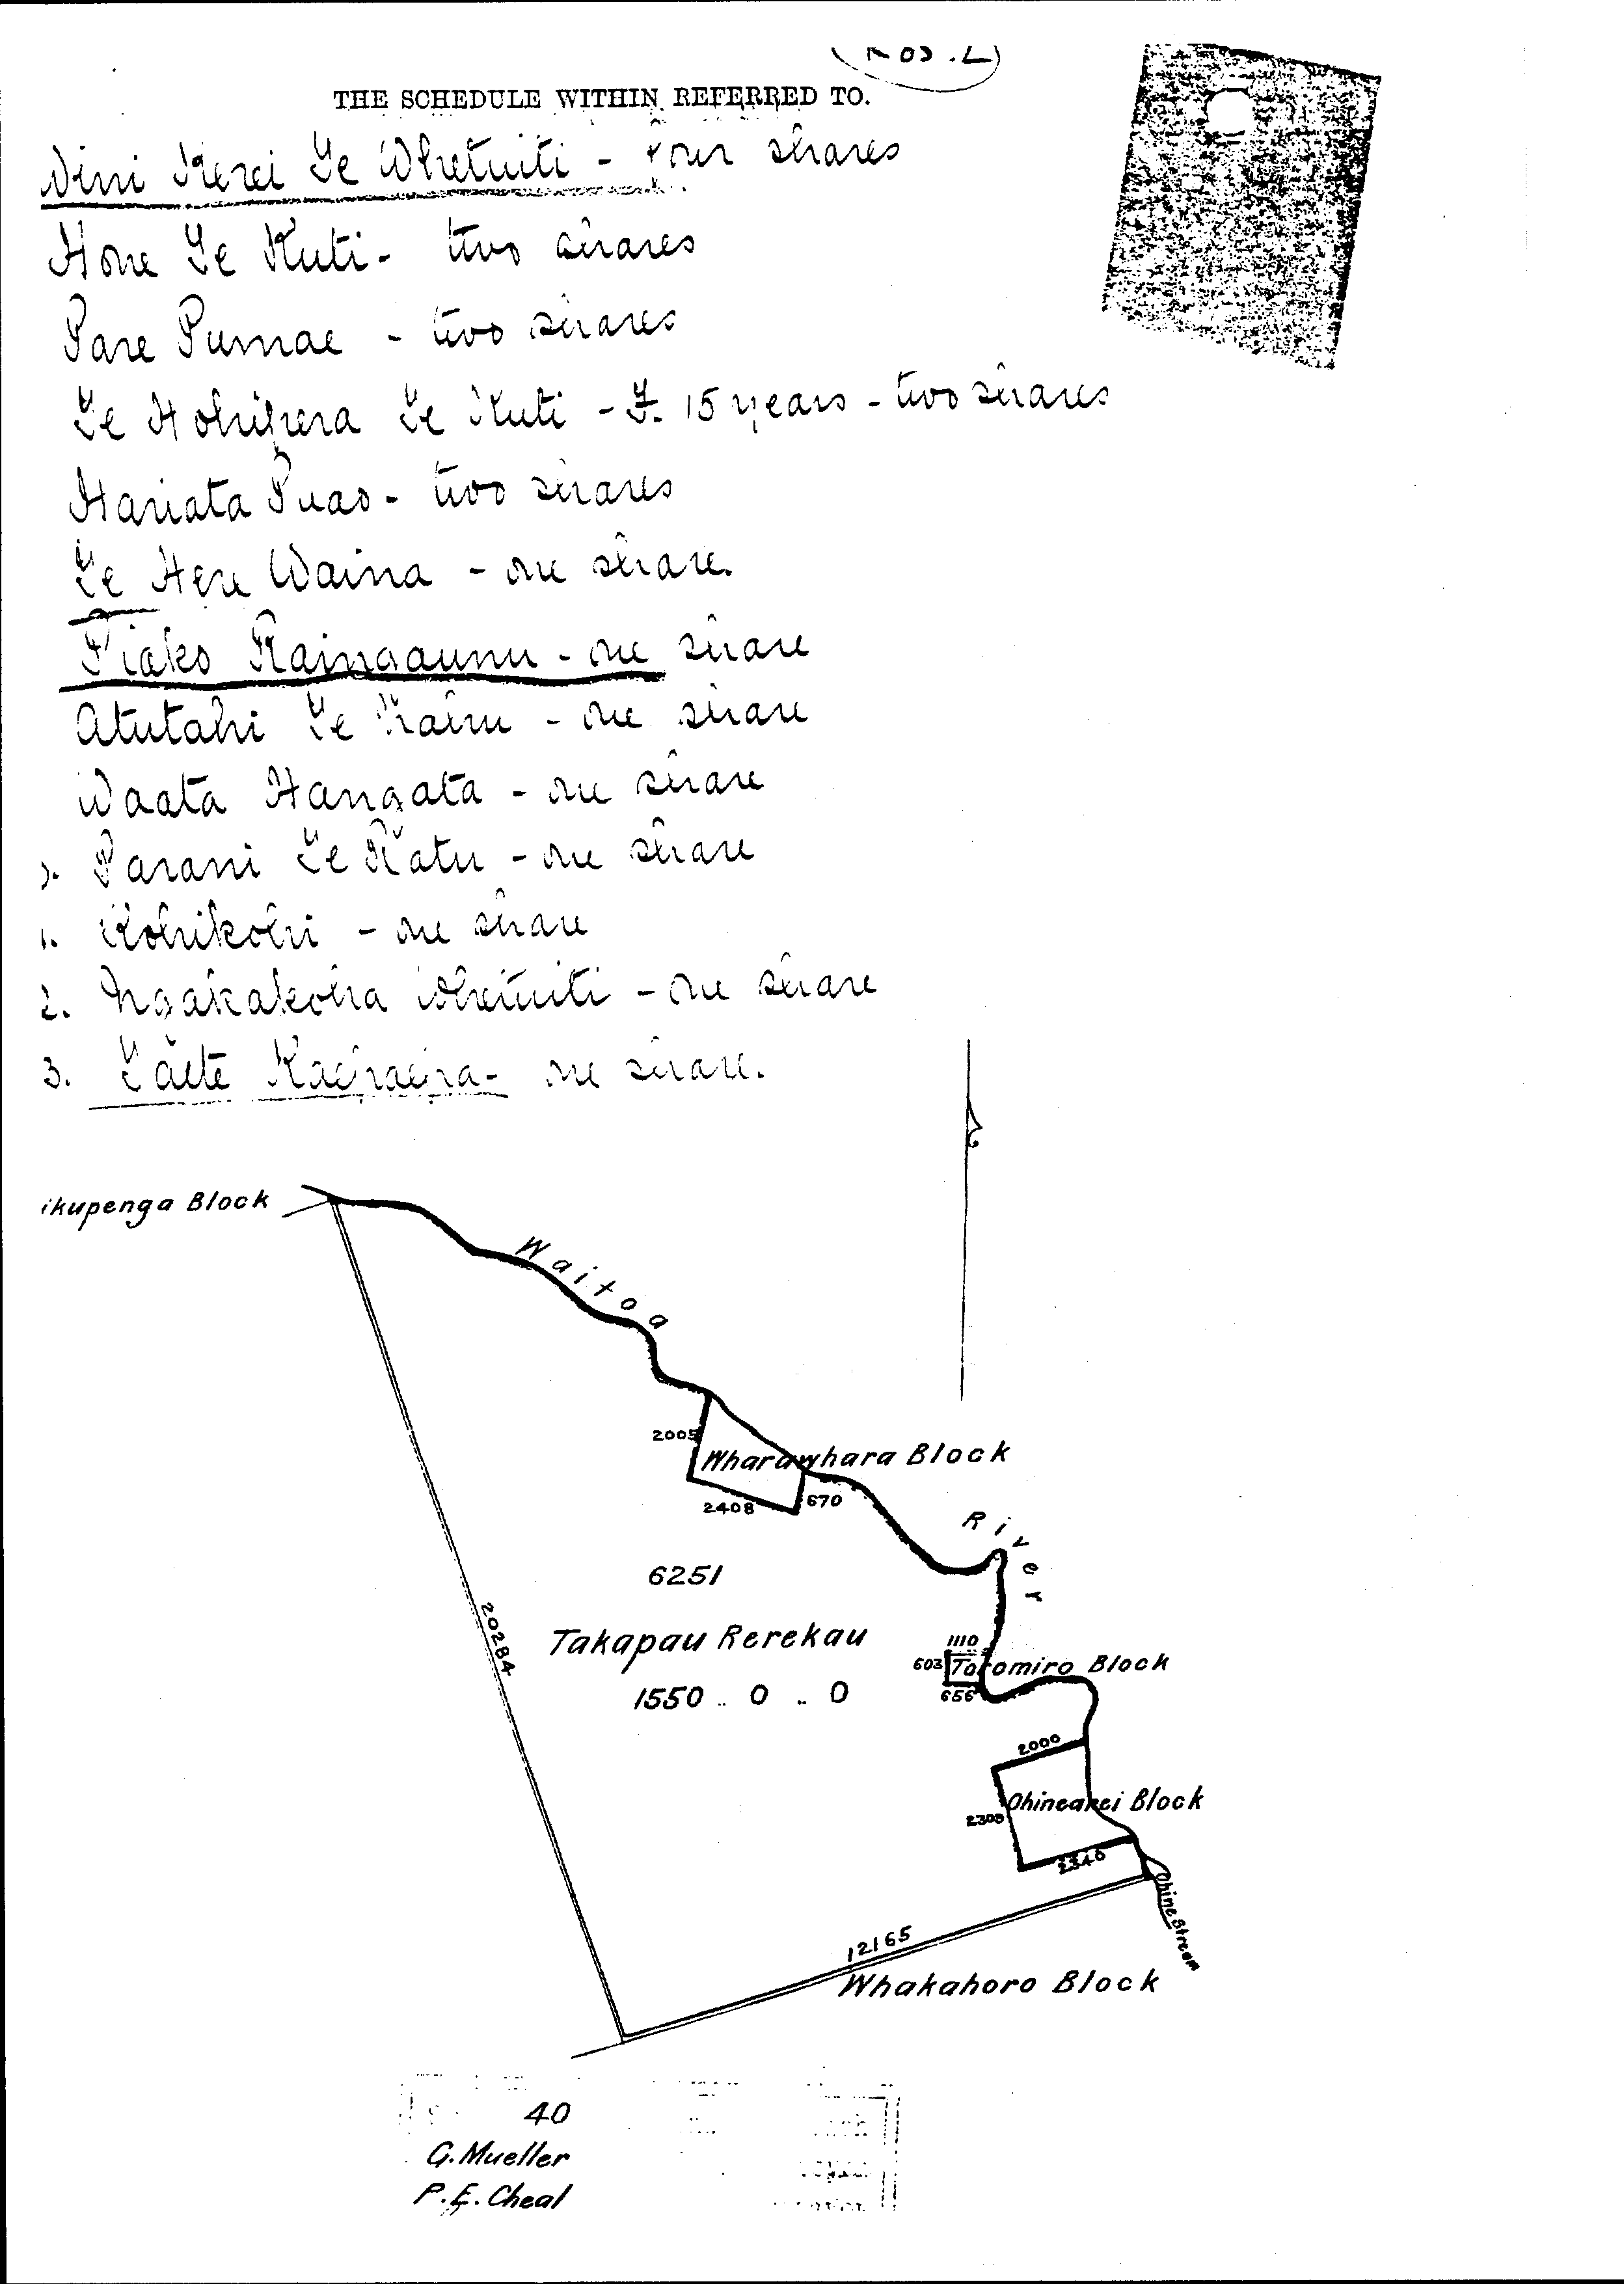 THE SCHEDULE WITHIN REFERRED TO.
Wini Kerei Te Whetuiti - Four shares
Hone Te Kuti - two shares
Pare Pumae - two shares
Te Hohipera Te Kuti - F. 15 years - two shares
Hariata Puao - two shares
Te Here Waina - one share.
Piako Raingaunu - one share
Atutahi Te - one share
Waata Hangata - one share
Parani Te Ratu - one share
1. Kohikohi - one share
2. Ngakakoha Whetuiti - one share
3. Taete - one share.
ikupenga Block
Waitoa
2005
Wharawhara Block
2408
670
River
6251
20284
Takapau Rerekau
1110
603
Toromiro Block
1550 .. 0 .. 0
656
2000
Ohinearei Block
2309
2340
Ohine Stream
12165
Whakahoro Block
40
G. Mueller
P. E. Cheal